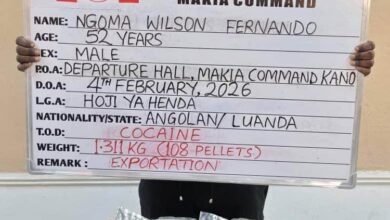 MAKIA COMMAND
NAME: NGOMA WILSON FERNANDO
AGE: 52 YEARS
EX: MALE
P.O.A: DEPARTURE HALL, MAKIA COMMAND KANO
D.O.A: 4TH FEBRUARY, 2026
L.G.A: HOJI YA HENDA
NATIONALITY/STATE: ANGOLAN/ LUANDA
T.O.D: COCAINE
WEIGHT: 1.311 KG (108 PELLETS)
REMARK: EXPORTATION